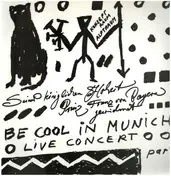 Seiner königlichen Hoheit
Prinz Franz von Bayern
gewidmet
BE COOL IN MUNICH
LIVE CONCERT
par